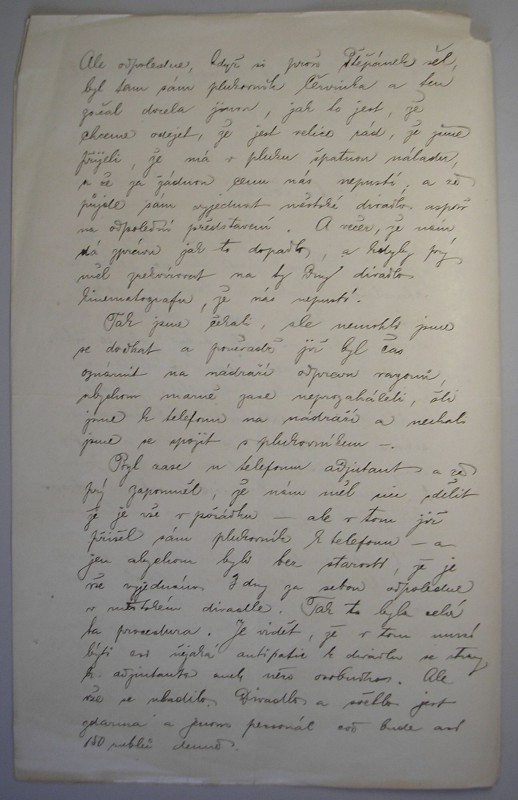 Ale odpoledne, když si proň Štěpánek šel,
byl tam sám plukovník Červinka a ten
začal docela jinou, jak to jest, že
chceme odejet, že jest velice rád, že jsme
přijeli, že má v pluku špatnou náladu,
a že za žádnou cenu nás nepustí, a že
půjde sám vyjednat městské divadlo aspoň
na odpolední představení. A večer, že nám
dá zprávu jak to dopadlo, a kdyby prý
měl zrekvírovat na ty dny divadlo
kinematografu, že nás nepustí.
Tak jsme čekali, ale nemohli jsme
se dočkat a poněvadž již byl čas
oznámit na nádraží odpravu vagonů,
abychom marně zase neprozaháleli, šli
jsme k telefonu na nádraží a nechali
jsme se spojit s plukovníkem –.
Byl zase u telefonu adjutant a že
prý zapomněl, že nám měl sice sdělit
že je vše v pořádku – ale v tom již
přišel sám plukovník k telefonu – a
jen abychom byli bez starosti, že je
vše vyjednáno 3 dny za sebou odpoledne
v městském divadle. Tak to byla celá
ta procedura. Je vidět, že v tom musí
býti asi nějaká antipatie k divadlu se strany
p. adjutanta aneb něco osobního. Ale
vše se uhladilo. Divadlo a světlo jest
zdarma a jenom personál což bude asi
150 rublů denně.